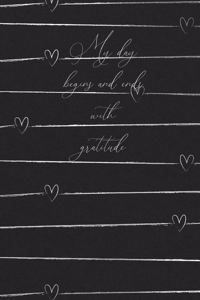 My day
begins and ends
with
gratitude